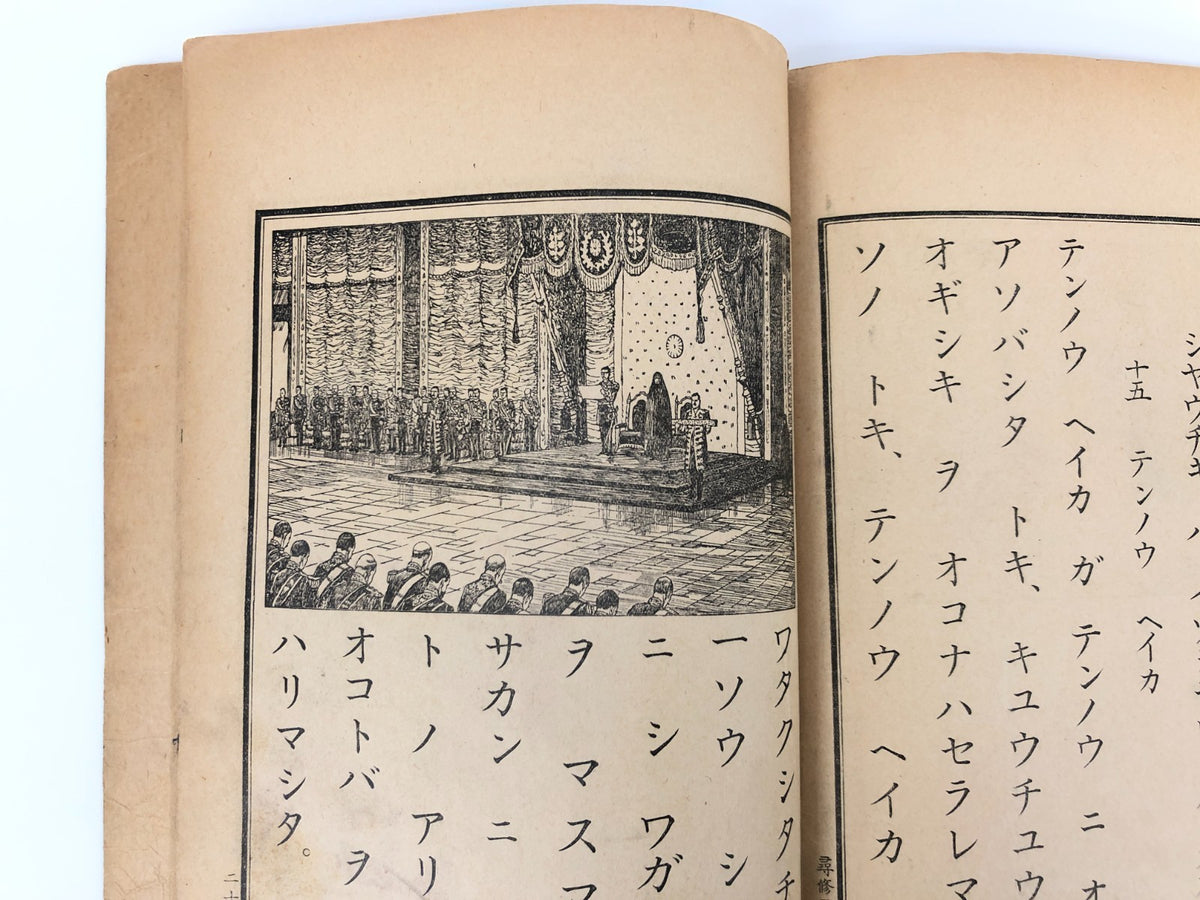 十五 テンノウ ヘイカ
テンノウ ヘイカ ガ テンノウ ニ オ
アソバシタ トキ、 キユウチユウ
オギシキ ヲ オコナハセラレマ
ソノ トキ、 テンノウ ヘイカ
尋修
ワタクシタチ
一ソウ シ
ニ シ ワガ
ヲ マス
サカン ニ
ト ノ アリ
オコトバ ヲ
ハリマシタ。
二十